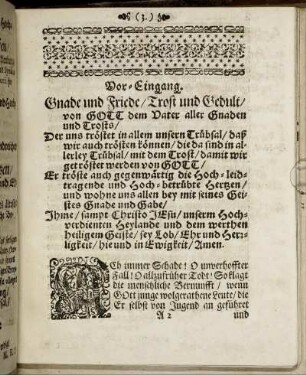 (3.)
Vor-Eingang.
Gnade und Friede / Trost und Gedult /
von GOTT dem Vater aller Gnaden
und Trosts /
Der uns tröstet in allem unsern Trübsal / daß
wir auch trösten können / die da sind in al-
lerley Trübsal / mit dem Trost / damit wir
getröstet werden von GOTT /
Er tröste auch gegenwärtig die Hoch-leid-
tragende und Hoch-betrübte Hertzen /
und wohne uns allen bey mit seines Gei-
stes Gnade und Gabe /
Ihme / sampt Christo JEsu / unserm Hoch-
verdienten Heylande und dem werthen
heiligen Geiste / sey Lob / Ehr und Herr-
ligkeit / hie und in Ewigkeit / Amen.
Ch immer Schade! O unverhoffter
Fall! O allzufrüher Todt! So klagt
die menschliche Vernunfft / wenn
GOtt junge wolgerathene Leute / die
Er selbst von Jugend an geführet
A 2
und